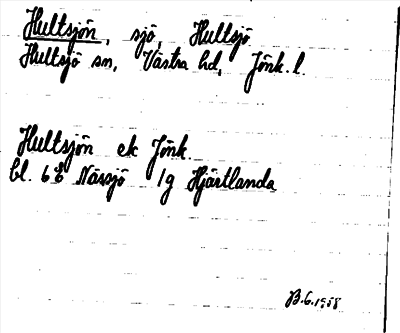 Hultsjön, sjö, Hultsjö
Hultsjö sn, Västra hd, Jönk. l.
Hultsjön ek Jönk.
bl. 6E Nässjö 1g Hjärtlanda
B.G. 1958